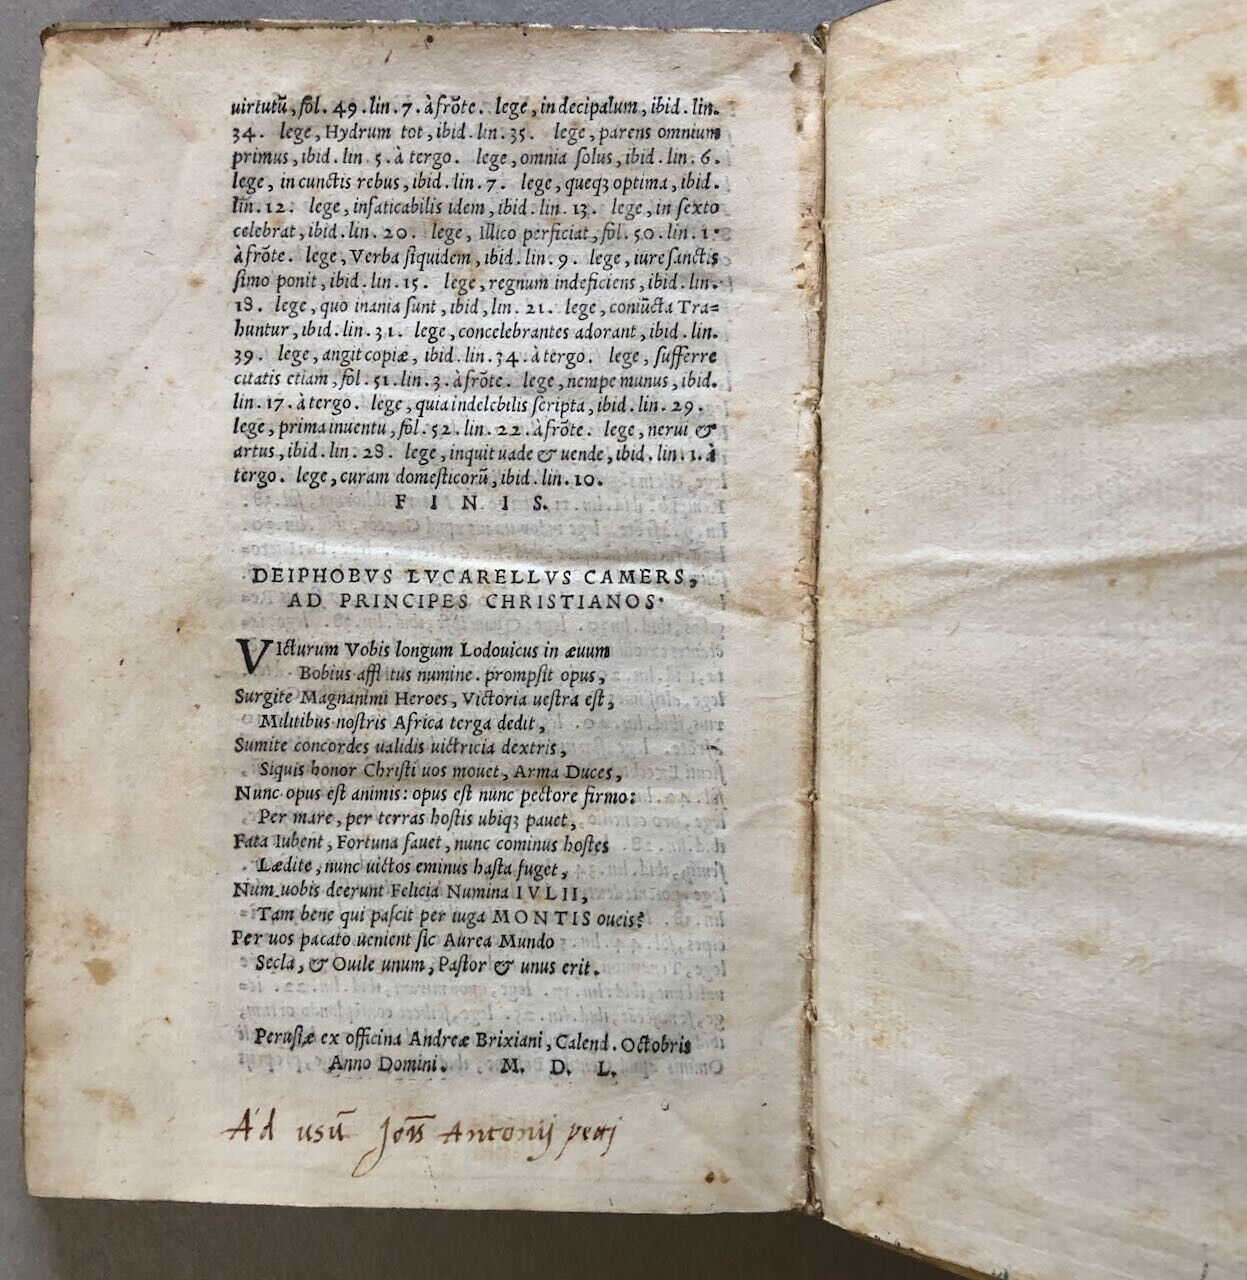 uirtutũ, fol. 49. lin. 7. à frõte. lege, in decipalum, ibid. lin.
34. lege, Hydrum tot, ibid. lin. 35. lege, parens omnium
primus, ibid. lin. 5. à tergo. lege, omnia solus, ibid. lin. 6.
lege, in cunctis rebus, ibid. lin. 7. lege, queqꝫ optima, ibid.
lin. 12. lege, insaticabilis idem, ibid. lin. 13. lege, in sexto
celebrat, ibid. lin. 20. lege, Illico perficiat, fol. 50. lin. 1.
à frõte. lege, Verba siquidem, ibid. lin. 9. lege, iure sanctis
simo ponit, ibid. lin. 15. lege, regnum indeficiens, ibid. lin.
18. lege, quo inania sunt, ibid, lin. 21. lege, coniũcta Tra=
huntur, ibid. lin. 31. lege, concelebrantes adorant, ibid. lin.
39. lege, angit copiæ, ibid. lin. 34. à tergo. lege, sufferre
citatis etiam, fol. 51. lin. 3. à frõte. lege, nempe munus, ibid.
lin. 17. à tergo. lege, quia indelebilis scripta, ibid. lin. 29.
lege, prima inuentu, fol. 52. lin. 22. à frõte. lege, nerui &
artus, ibid. lin. 28. lege, inquit uade & uende, ibid. lin. 1. à
tergo. lege, curam domesticorũ, ibid. lin. 10.
F I N I S.
DEIPHOBVS LVCARELLVS CAMERS,
AD PRINCIPES CHRISTIANOS.
VIcturum Vobis longum Lodouicus in æuum
Bobius affl tus numine. prompsit opus,
Surgite Magnanimi Heroes, Victoria uestra est,
Militibus nostris Africa terga dedit,
Sumite concordes ualidis uictricia dextris,
Siquis honor Christi uos mouet, Arma Duces,
Nunc opus est animis: opus est nunc pectore firmo:
Per mare, per terras hostis ubiqꝫ pauet,
Fata Iubent, Fortuna fauet, nunc cominus hostes
Lædite, nunc uictos eminus hasta fuget,
Num uobis deerunt Felicia Numina IVLII,
Tam bene qui pascit per iuga MONTIS oueis?
Per uos pacato uenient sic Aurea Mundo
Secla, & Ouile unum, Pastor & unus erit.
Perusiæ ex officina Andreæ Brixiani, Calend. Octobris
Anno Domini. M. D. L.
Ad usũ Joñis Antonij